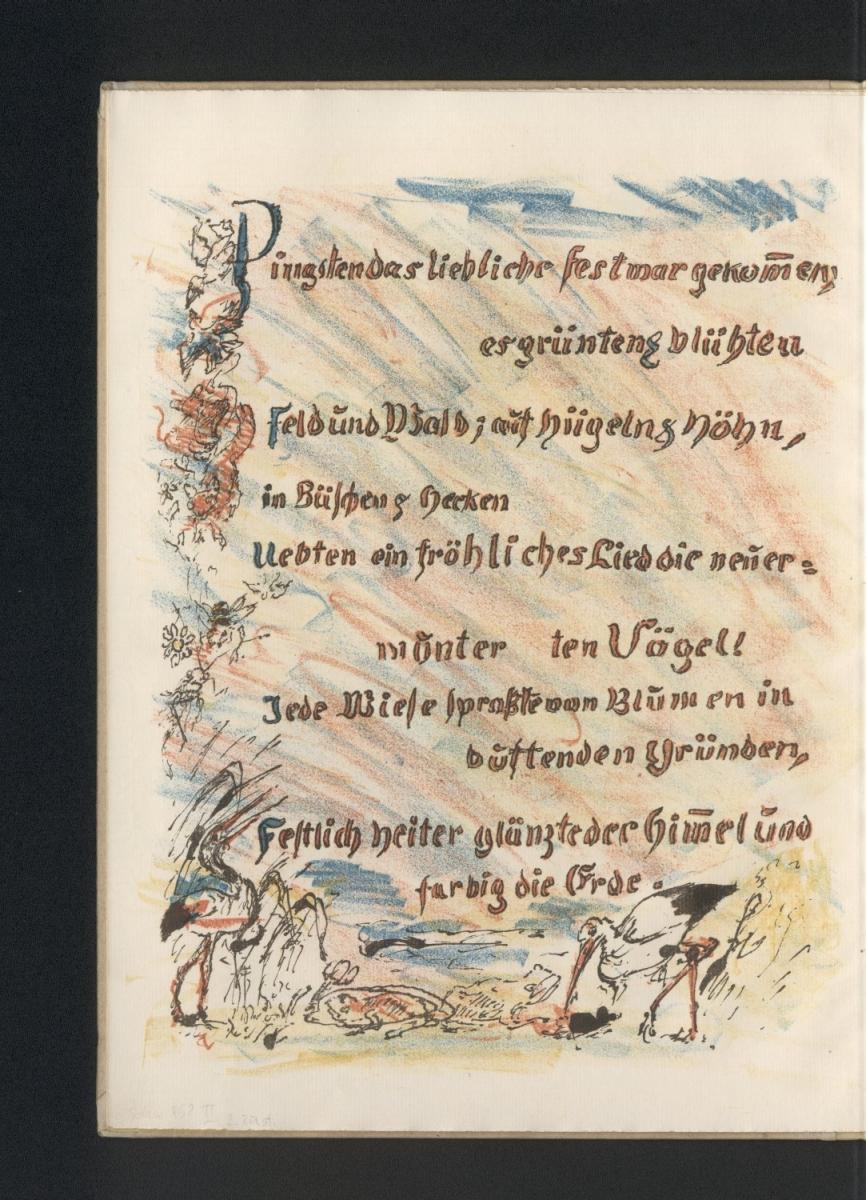 Pfingsten das liebliche Fest war gekom̅en,
es grünten & blühten
Feld und Wald; auf Hügeln & Höhn,
in Büschen & Hecken
Uebten ein fröhliches Lied die neuer=
munter ten Vögel!
Jede Wiese sproßte von Blumen in
duftenden Gründen,
Festlich heiter glänzte der Him̅el und
farbig die Erde.